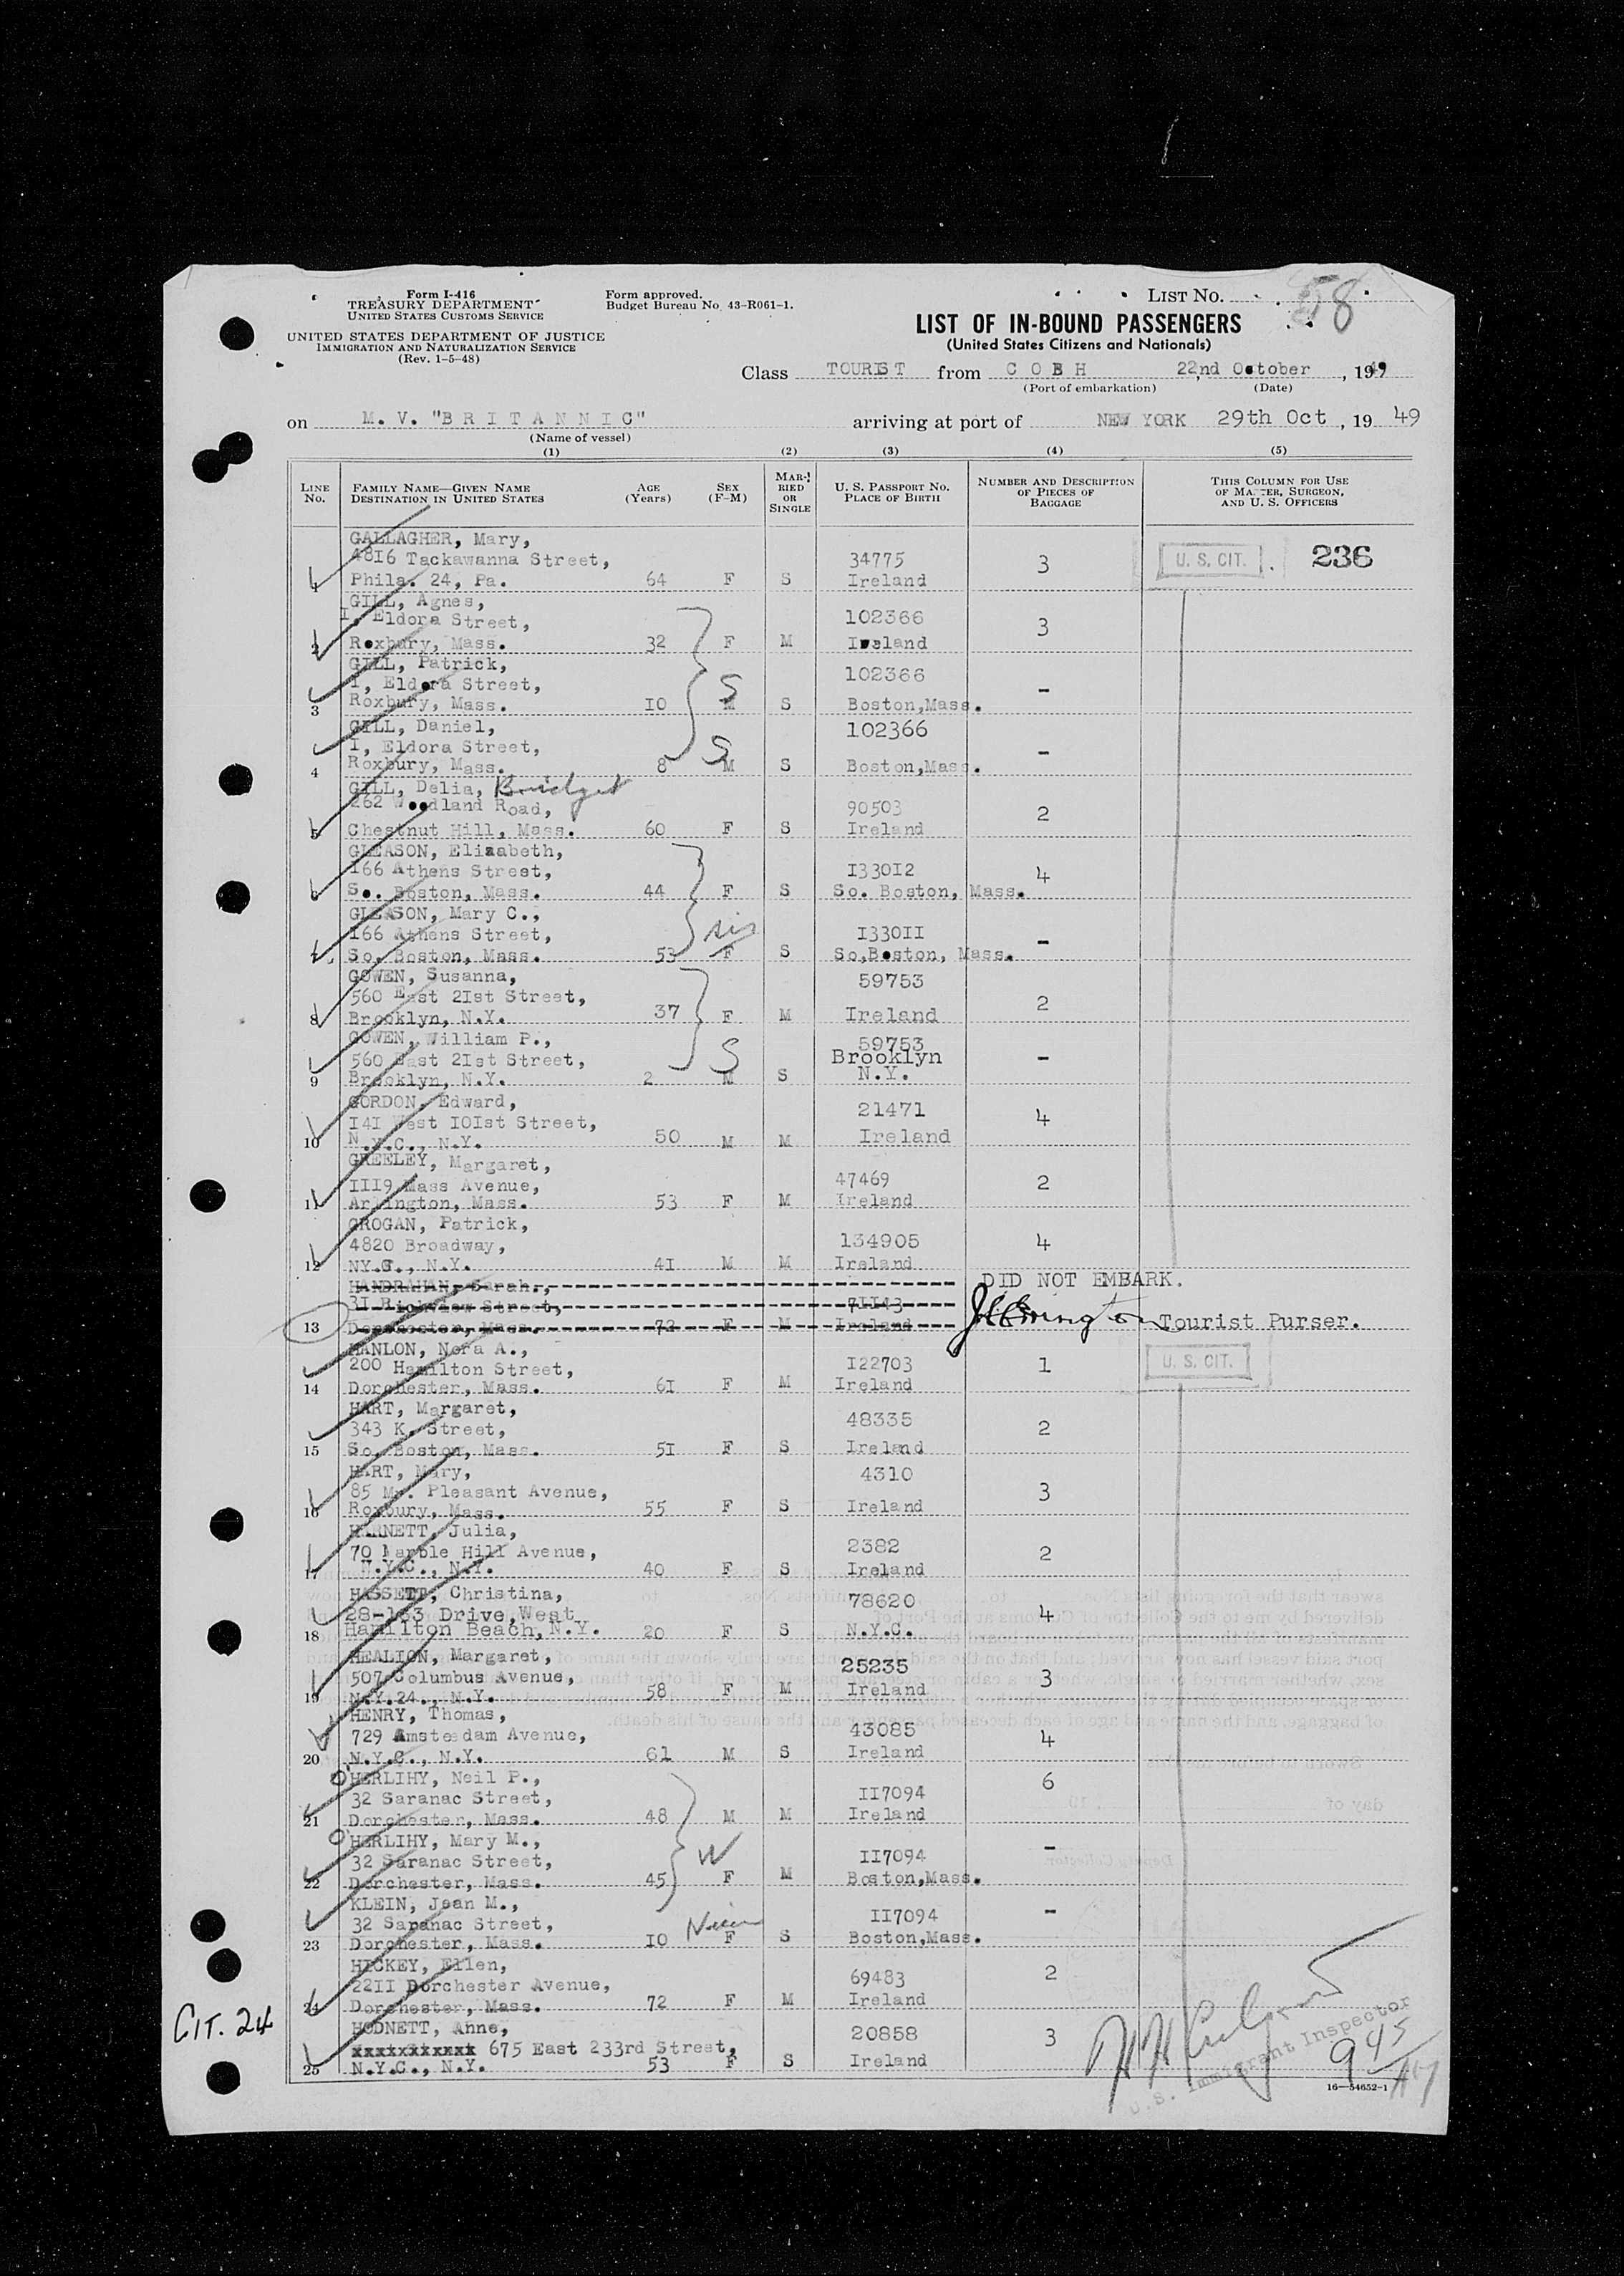 Form I-416
TREASURY DEPARTMENT
UNITED STATES CUSTOMS SERVICE
UNITED STATES DEPARTMENT OF JUSTICE
IMMIGRATION AND NATURALIZATION SERVICE
(Rev. 1-5-48)
Form approved.
Budget Bureau No. 43-R061-1.
LIST NO. 58
LIST OF IN-BOUND PASSENGERS
(United States Citizens and Nationals)
Class TOURIST from COBH 22nd October, 1949
(Port of embarkation) (Date)
on M. V. "BRITANNIC" arriving at port of NEW YORK 29th Oct, 19 49
(Name of vessel)
(1) (2) (3) (4) (5)
LINE NO.
FAMILY NAME—GIVEN NAME
DESTINATION IN UNITED STATES
AGE (Years)
SEX (F-M)
MARRIED OR SINGLE
U. S. PASSPORT NO.
PLACE OF BIRTH
NUMBER AND DESCRIPTION OF PIECES OF BAGGAGE
THIS COLUMN FOR USE OF MASTER, SURGEON, AND U. S. OFFICERS
GALLAGHER, Mary,
4816 Tackawanna Street, 34775 3 U. S. CIT. 236
1 Phila. 24, Pa. 64 F S Ireland
GILL, Agnes,
I, Eldora Street, 102366 3
2 Roxbury, Mass. 32 F M Ireland
GILL, Patrick,
I, Eldora Street, 102366 -
S
3 Roxbury, Mass. 10 M S Boston,Mass.
GILL, Daniel, 102366
I, Eldora Street, -
S
4 Roxbury, Mass. 8 M S Boston,Mass.
GILL, Delia, Bridget
262 Woodland Road, 90503 2
5 Chestnut Hill, Mass. 60 F S Ireland
GLEASON, Elizabeth,
166 Athens Street, 133012 4
6 So. Boston, Mass. 44 F S So. Boston, Mass.
GLEASON, Mary C.,
166 Athens Street, 133011 -
sis
7 So, Boston, Mass. 53 F S So,Boston, Mass.
GOWEN, Susanna, 59753
560 East 21st Street, 2
8 Brooklyn, N.Y. 37 F M Ireland
GOWEN, William P., 59753
560 East 21st Street, Brooklyn -
S
9 Brooklyn, N.Y. 2 M S N.Y.
GORDON, Edward, 21471
141 West 101st Street, 4
10 N.Y.C., N.Y. 50 M M Ireland
GREELEY, Margaret,
1119 Mass Avenue, 47469 2
11 Arlington, Mass. 53 F M Ireland
GROGAN, Patrick,
4820 Broadway, 134905 4
12 NY.C., N.Y. 41 M M Ireland
HANDRAHAN, Sarah., DID NOT EMBARK.
Street, 71143
13 Dorchester, Mass. 72 F M Ireland Tourist Purser.
HANLON, Nora A.,
200 Hamilton Street, 122703 1 U. S. CIT.
14 Dorchester, Mass. 61 F M Ireland
HART, Margaret,
343 K. Street, 48335 2
15 So, Boston, Mass. 51 F S Ireland
HART, Mary, 4310
85 Mt. Pleasant Avenue, 3
16 Roxbury, Mass. 55 F S Ireland
HARNETT, Julia,
70 Marble Hill Avenue, 2382 2
17 N.Y.C., N.Y. 40 F S Ireland
HASSETT, Christina, 78620
28-163 Drive,West 4
18 Hamilton Beach, N.Y. 20 F S N.Y.C.
HEALION, Margaret,
507 Columbus Avenue, 25235 3
19 N.Y.24., N.Y. 58 F M Ireland
HENRY, Thomas,
729 Amsterdam Avenue, 43085 4
20 N.Y.C., N.Y. 61 M S Ireland
HERLIHY, Neil P., 6
32 Saranac Street, 117094
21 Dorchester, Mass. 48 M M Ireland
HERLIHY, Mary M.,
32 Saranac Street, 117094 -
W
22 Dorchester, Mass. 45 F M Boston,Mass.
KLEIN, Jean M.,
32 Saranac Street, 117094 -
Niece
23 Dorchester, Mass. 10 F S Boston,Mass.
HICKEY, Ellen,
2211 Dorchester Avenue, 69483 2
24 Dorchester, Mass. 72 F M Ireland
HODNETT, Anne, 20858
xxxxxxxxxxx 675 East 233rd Street, 3
25 N.Y.C., N.Y. 53 F S Ireland
CIT. 24
U.S. Immigrant Inspector
945
16—54652-1